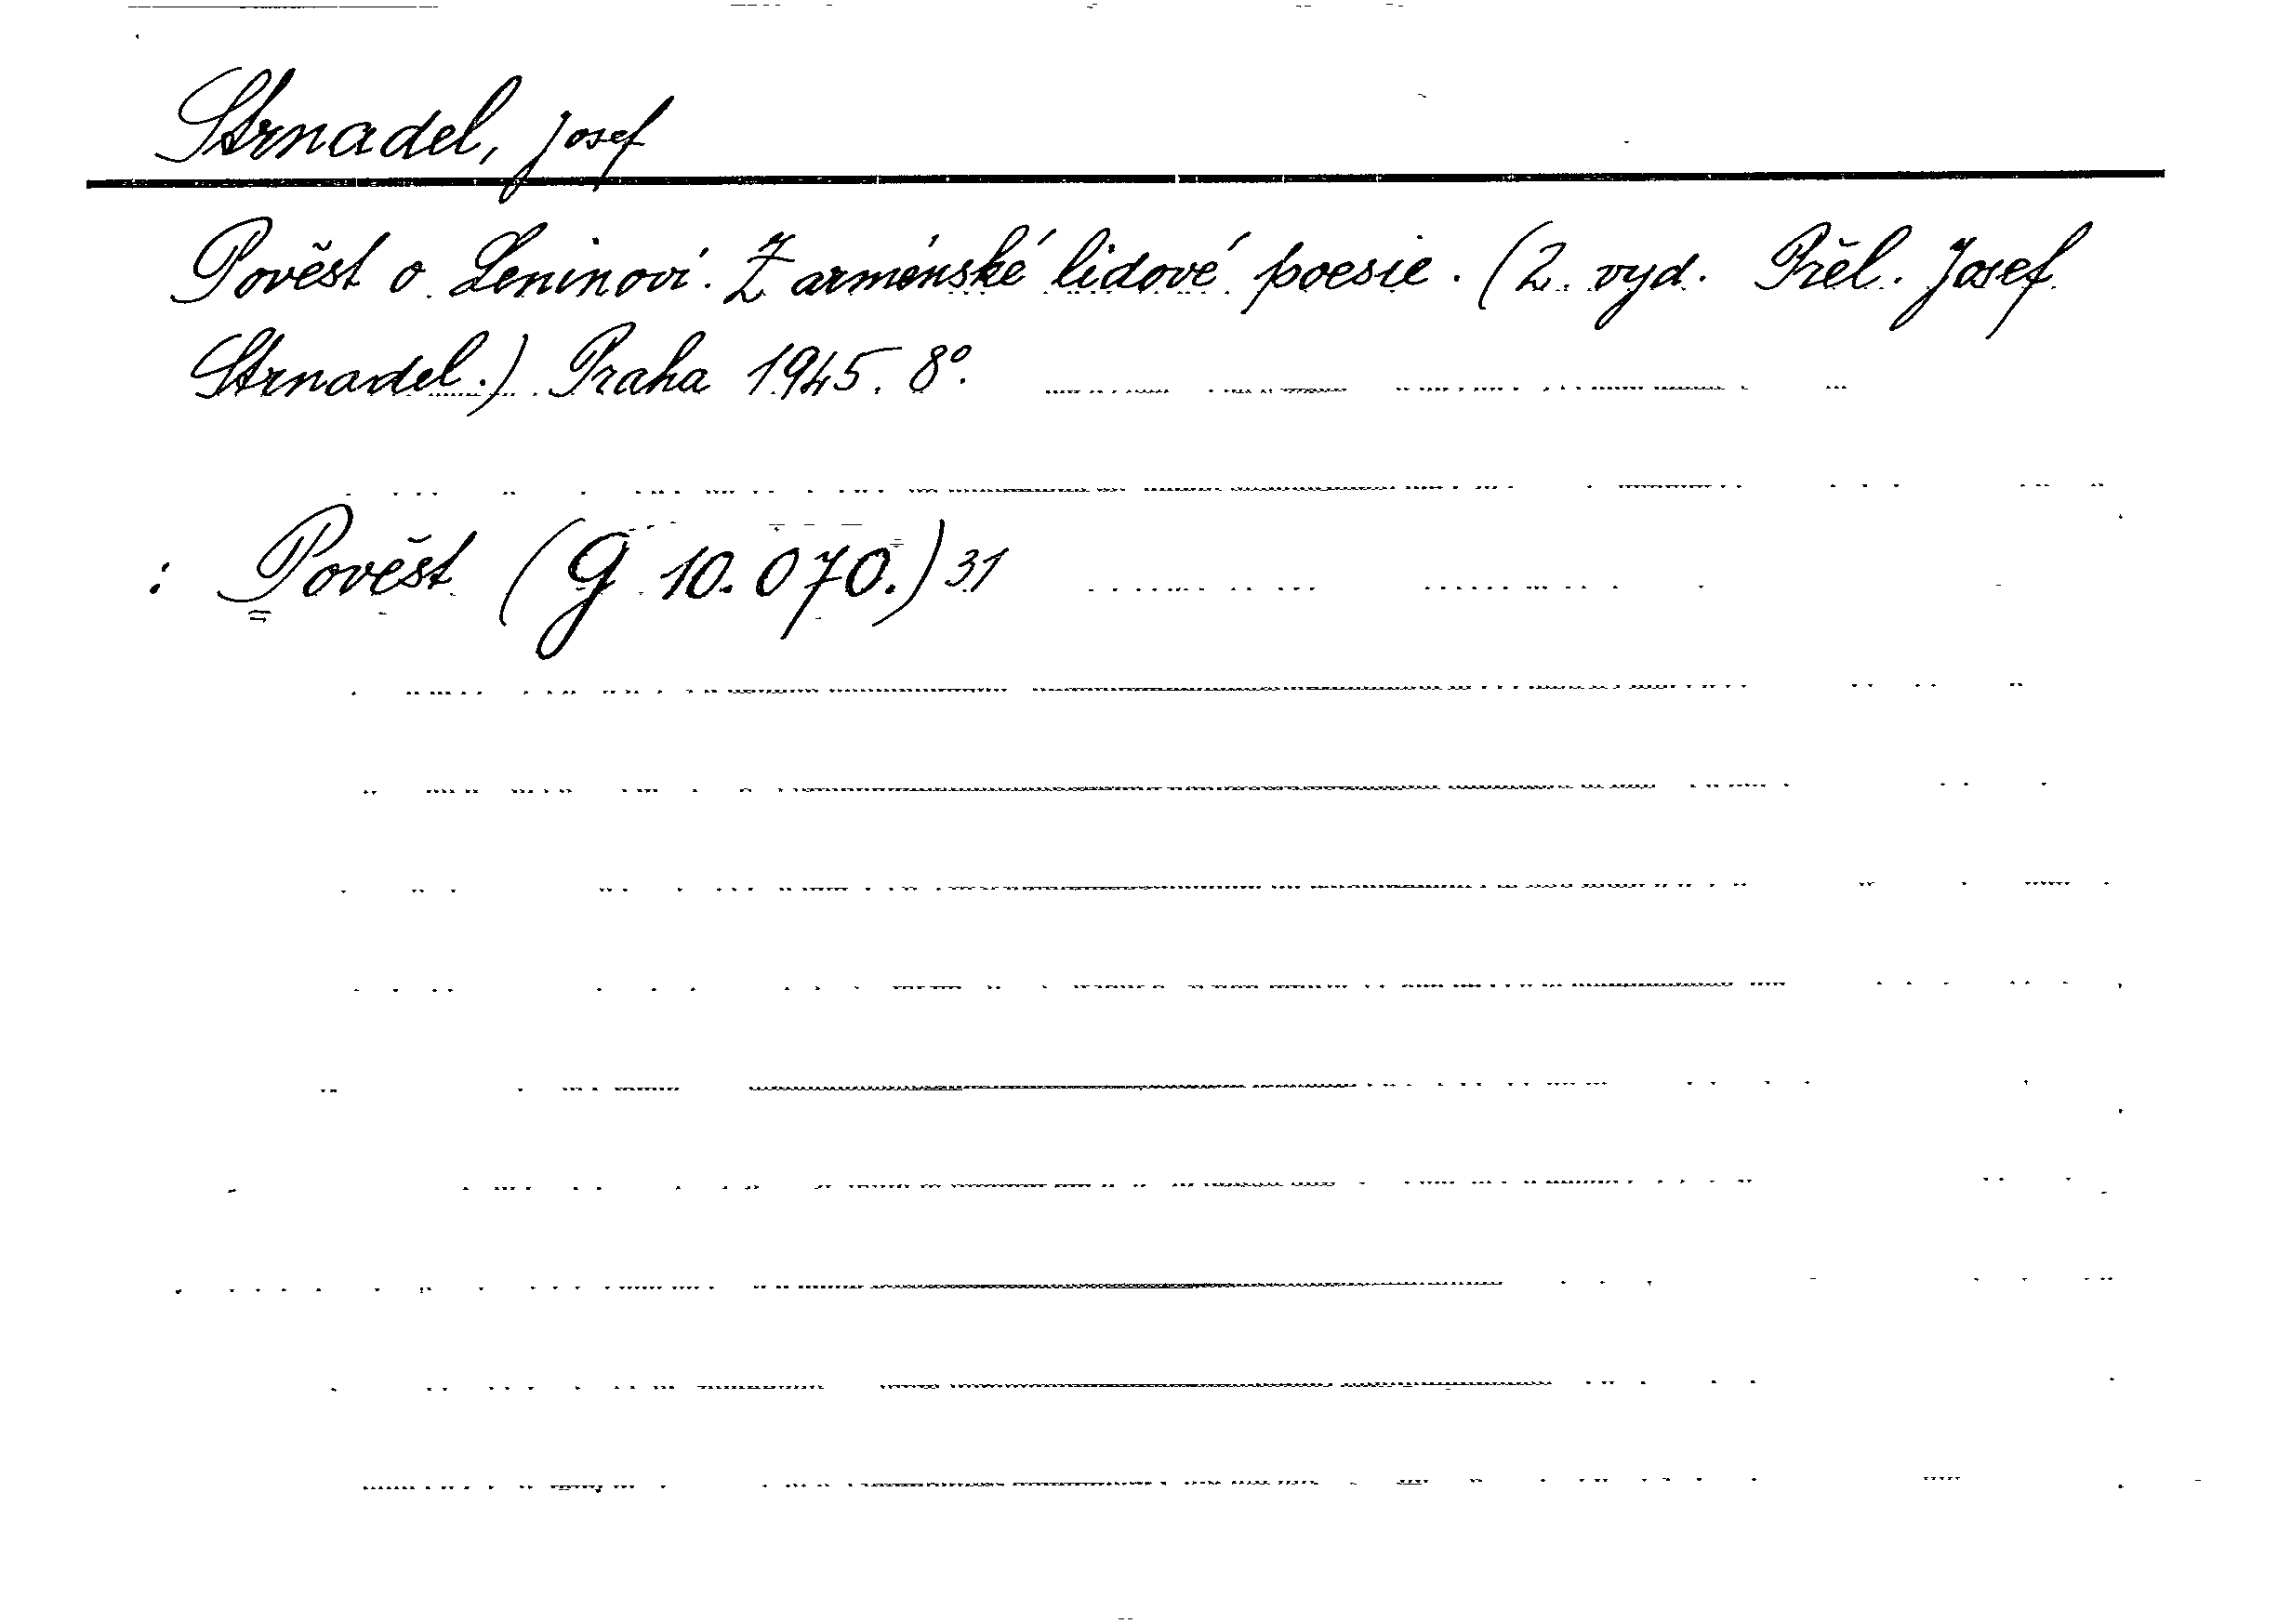 Strnadel, Josef
Pověst o Leninovi. Z arménské lidové poesie. (2. vyd. Přel. Josef
Strnadel.) Praha 1945. 8°.
: Pověst (G 10.070.) 31